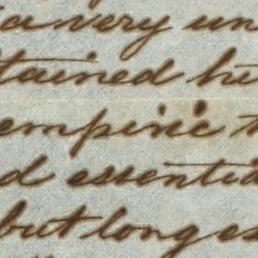 a very un
tained hi
empiric t
d essentia
but long es